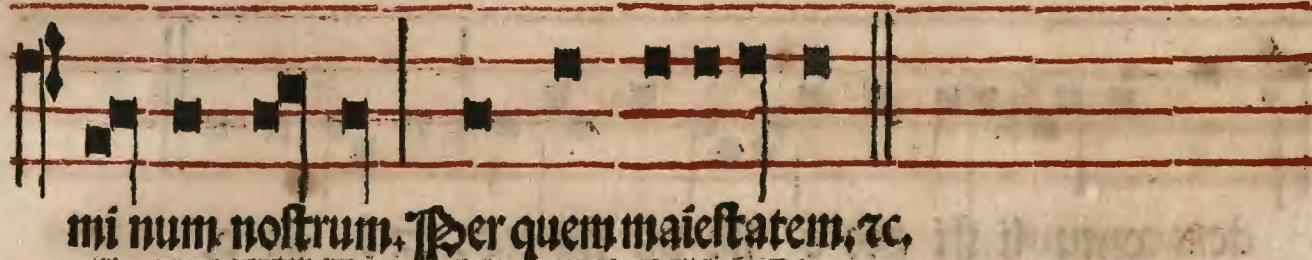 mi num noſtrum. Per quem maieſtatem, ⁊c,